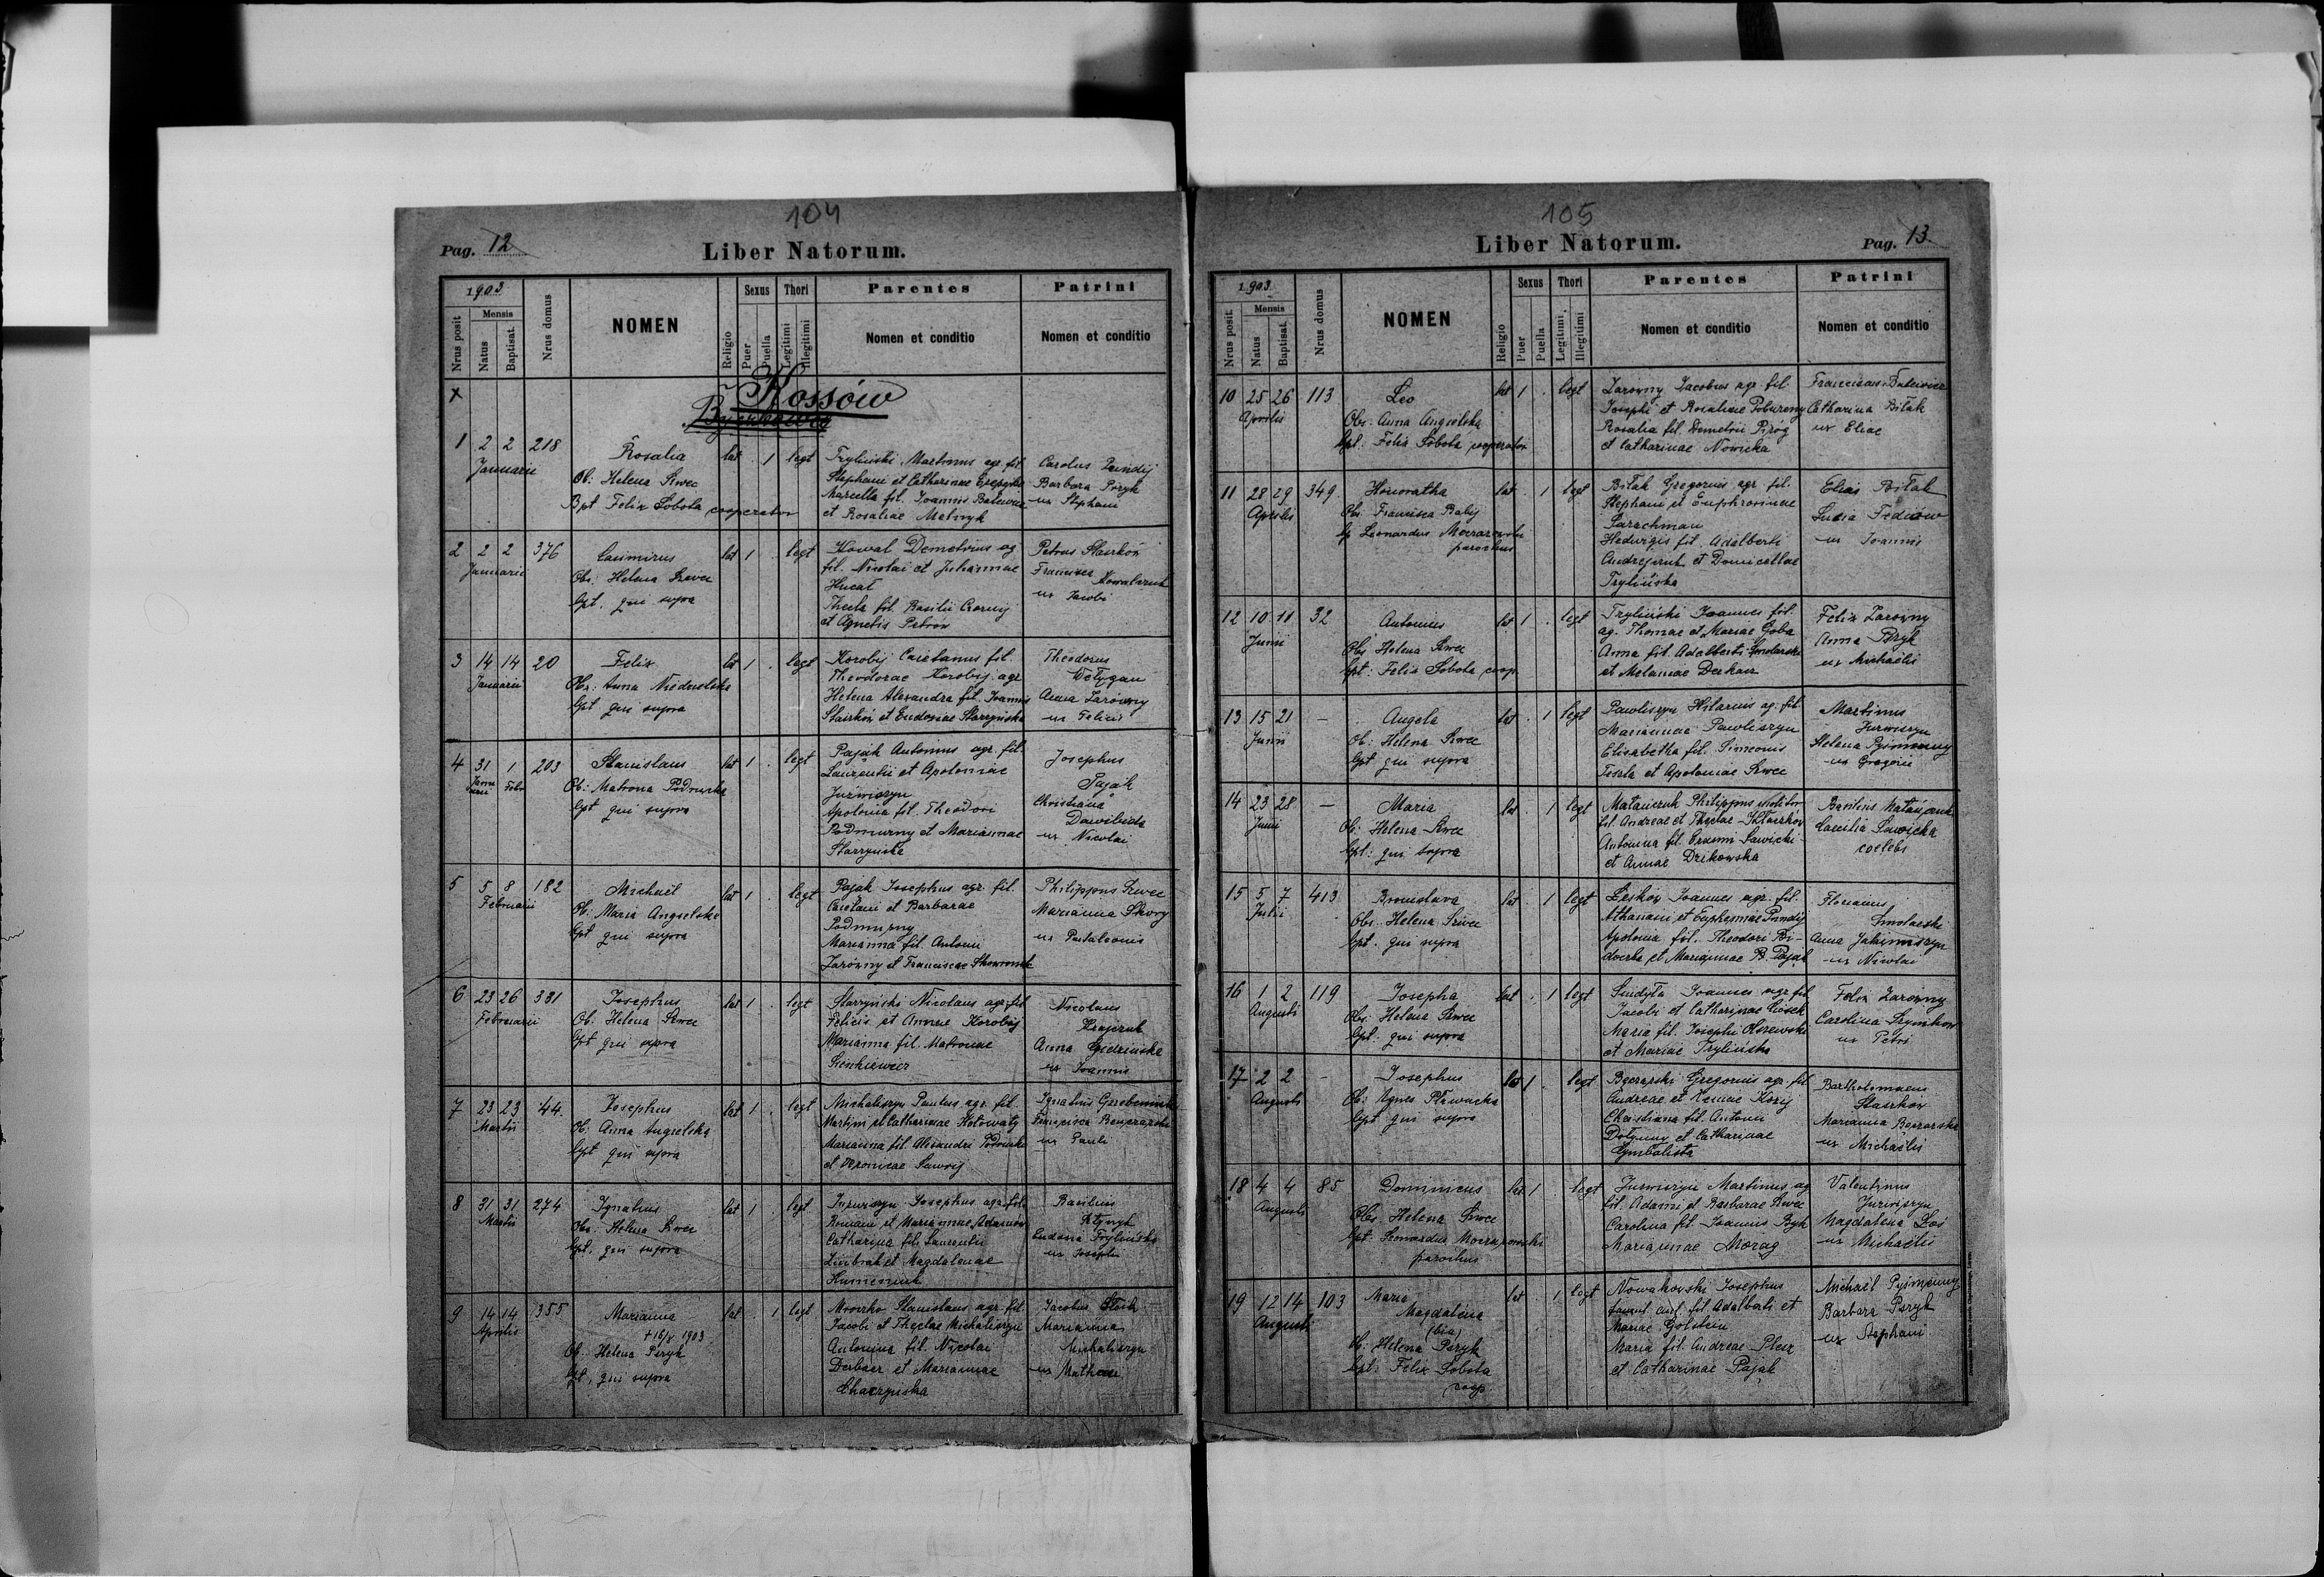 104
Pag. 12
Liber Natorum.
1903
Mensis
Nrus posit
Natus
Baptisat.
Nrus domus
NOMEN
Religio
Sexus
Puer
Puella
Thori
Legitimi
Illegitimi
Parentes
Nomen et conditio
Patrini
Nomen et conditio
x
Kossów
1 2 2 218
Januarii
Rosalia
Ob: Helena Szwec
Bpt Felix Sobota cooperator
lat . 1 legt
Tryliński Martinus agr. fil.
Stephani et Catharinae
Marcella fil. Joannis
et Rosaliae Melnyk
Carolus Pundij
Barbara Psryk
ux Stephani
2 2 2 376
Januarii
Casimirus
Obs: Helena Szwec
bpt. qui supra
lat 1 . legt
Kowal Demetrius ag
fil. Nicolai et Juliannae
Hucał
Thecla fil. Basilii Czorny
et Agnetis Petrow
Petrus Staszków
Francisca Kowalczuk
ux Jacobi
3 14 14 20
Januarii
Felix
Obs: Anna
bpt qui supra
lat 1 . legt
Korobij Caietanus fil.
Theodorae Korobij agr
Helena Alexandra fil. Joannis
Staszków et Eudoxiae Starzyńska
Theodorus
Wełygan
Anna Zarówny
ux Felicis
4 31 1 203
Januarii Febr
Stanislaus
Ob: Matrona
bpt qui supra
lat 1 . legt
Pająk Antonius agr. fil.
Laurentii et Apoloniae
Juźwiszyn
Apolonia fil. Theodori
Podmurny et Mariannae
Starzyńska
Josephus
Pająk
Christiana
Dawibida
ux Nicolai
5 5 8 182
Februarii
Michael
Ob: Maria Angielska
bpt qui supra
lat 1 . legt
Pająk Josephus agr. fil.
Caietani et Barbarae
Podmurny
Marianna fil. Antoni
Zarówny et Franciscae
Philippus Szwec
Marianna Skory
ux Pantaleonis
6 23 26 331
Februarii
Josephus
Ob: Helena Szwec
bpt qui supra
lat 1 . legt
Starzyński Nicolaus agr. fil
Felicis et Annae Korobij
Marianna fil. Matronae
Sienkiewicz
Nicolaus
Krajczuk
Anna
ux Joannis
7 23 23 44.
Martii
Josephus
Ob: Anna Angielska
bpt qui supra
lat 1 . legt
Michaliszyn Paulus agr. fil.
Martini et Catharinae Hołowaty
Marianna fil. Alexandri
et Veronicae Sawoij
Ignatius
Francisca
ux Pauli
8 31 31 274
Martii
Ignatius
Obs: Helena Szwec
bpt. qui supra
lat 1 . legt
Josephus agr. fil.
Romani et Mariannae Adamów
Catharina fil. Laurentii
et Magdalenae
Humeniuk
Basilius
Eudoxia Trylińska
ux Josephi
9 14 14 355
Aprilis
Marianna
+ 16/x 1903
Ob: Helena Psryk
bpt, qui supra
lat . 1 legt
Stanislaus agr. fil.
Jacobi et Theclae Michaliszyn
Antonina fil. Nicolai
Derkacz et Mariannae
Jacobus
Marianna
Michaliszyn
ux Mathaei
105
Liber Natorum.
Pag. 13.
1903
Mensis
Nrus posit
Natus
Baptisat.
Nrus domus
NOMEN
Religio
Sexus
Puer
Puella
Thori
Legitimi
Illegitimi
Parentes
Nomen et conditio
Patrini
Nomen et conditio
10 25 26 113
Aprilis
Leo
Obs: Anna Angielska
bpt: Felix Sobota cooperator
lat 1 . legt
Zarówny Jacobus agr. fil.
Josephi et Rosaliae Pobureny
Rosalia fil. Demetrii Piróg
et Catharinae Nowicka
Franciscus
Catharina Bilak
ux Eliae
11 28 29 349
Aprilis
Honoratha
Obs: Francisca Babij
bp Leonardus
parochus
lat . 1 legt
Bilak Gregorius agr. fil.
Stephani et Euphrosinae
Parachman
Hedwigis fil. Adalberti
Andrejczuk et Domicellae
Trylińska
Elias Bilak
Lucia Fedków
ux Joannis
12 10 11 32
Junii
Antonius
Obs: Helena Szwec
bpt: Felix Sobota coop.
lat 1 . legt
Tryliński Joannes fil.
ag. Thomae et Mariae Goba
Anna fil. Adalberti Smolarski
et Melaniae Derkacz
Felix Zarowny
Anna Psryk
ux Michaelis
13 15 21 –
Junii
Angela
Ob: Helena Szwec
bpt qui supra
lat . 1 legt
Pawliszyn Hilarius ag. fil.
Mariannae Pawliszyn
Elisabetha fil. Simeonis
et Apoloniae Szwec
Martinus
Jurwiszyn
Helena Pyśmenny
ux Gregorii
14 23 28 –
Junii
Maria
Ob: Helena Szwec
bpt: qui supra
lat . 1 legt
Matańczuk Philippus molitor
fil. Andreae et Theclae
Antonina fil. Erasmi Sawicki
et Annae Dzikowska
Basilius Matańczuk
Caecilia Sawicka
coelebs
15 5 7 413
Julii
Bronislava
Obs: Helena Szwec
bpt. qui supra
lat . 1 legt
Leśków Joannes agr. fil.
Athanasii et Euphemiae Pundij
Apolonia fil. Theodori
et Mariannae B. Pająk
Florianus
Smolarski
Anna Jakimiszyn
ux Nicolai
16 1 2 119
Augusti
Josepha
Obs: Helena Szwec
bpt: qui supra
lat . 1 legt
Sindyła Joannes agr. fil
Jacobi et Catharinae Ciosek
Maria fil. Josephi Olszewski
et Mariae Trylińska
Felix Zarówny
Carolina Szymków
ux Petri
17 2 2 –
Augusti
Josephus
Ob: Agnes
bpt qui supra
lat 1 . legt
Gregorius agr. fil
Andreae et Xeniae
Christiana fil. Antoni
et Catharinae
Cymbalista
Bartholomaeus
Staszków
Marianna
ux Michaelis
18 4 4 85
Augusti
Dominicus
Obs: Helena Szwec
bpt: Leonardus
parochus
lat 1 . legt
Jurwiszyn Martinus ag
fil. Adami et Barbarae Szwec
Carolina fil. Joannis Byk
Mariannae Morag
Valentinus
Jurwiszyn
Magdalena Łoś
ux Michaelis
19 12 14 103
Augusti
Maria
Magdalena
(bin)
Ob: Helena Psryk
bpt: Felix Sobota
coop
lat . 1 legt
Nowakowski Josephus
fil. Adalberti et
Mariae Golstein
Maria fil. Andreae
et Catharinae Pająk
Michael Pyśmenny
Barbara Psryk
ux Stephani